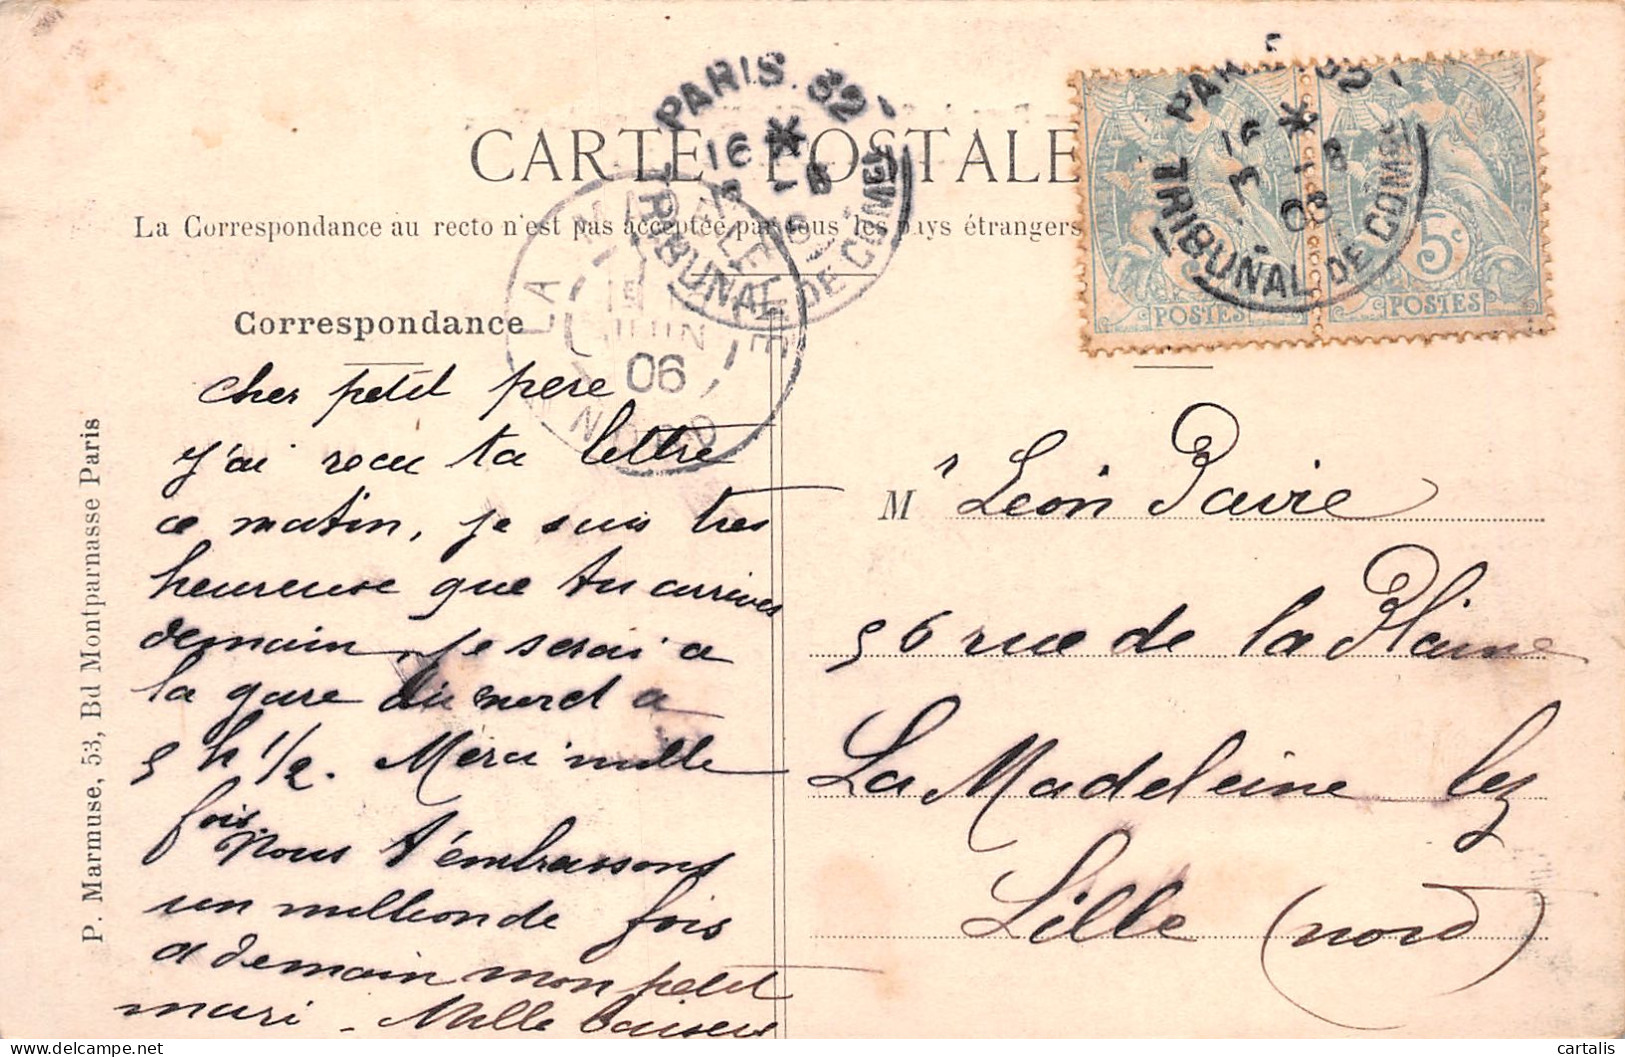 CARTE POSTALE
La Correspondance au recto n'est pas acceptée par tous les pays étrangers
PARIS. 62
TRIBUNAL DE COMM
LA MADELEINE
15
JUIN
06
NORD
TRIBUNAL DE COMM
POSTES
5c
POSTES
Correspondance
Cher petit pere
J'ai recu ta lettre
ce matin, je suis tres
heureuse que tu arrives
demain, je serai a
la gare du nord a
5 h 1/2. Merci mille
fois.
Nous t'embrassons
un million de fois
a demain mon petit
mari - Mille baisers
Mr Léon Pavie
56 rue de la Plaine
La Madeleine lez
Lille (nord)
P. Marmuse, 53, Bd Montparnasse Paris
cartalis
delcampe.net